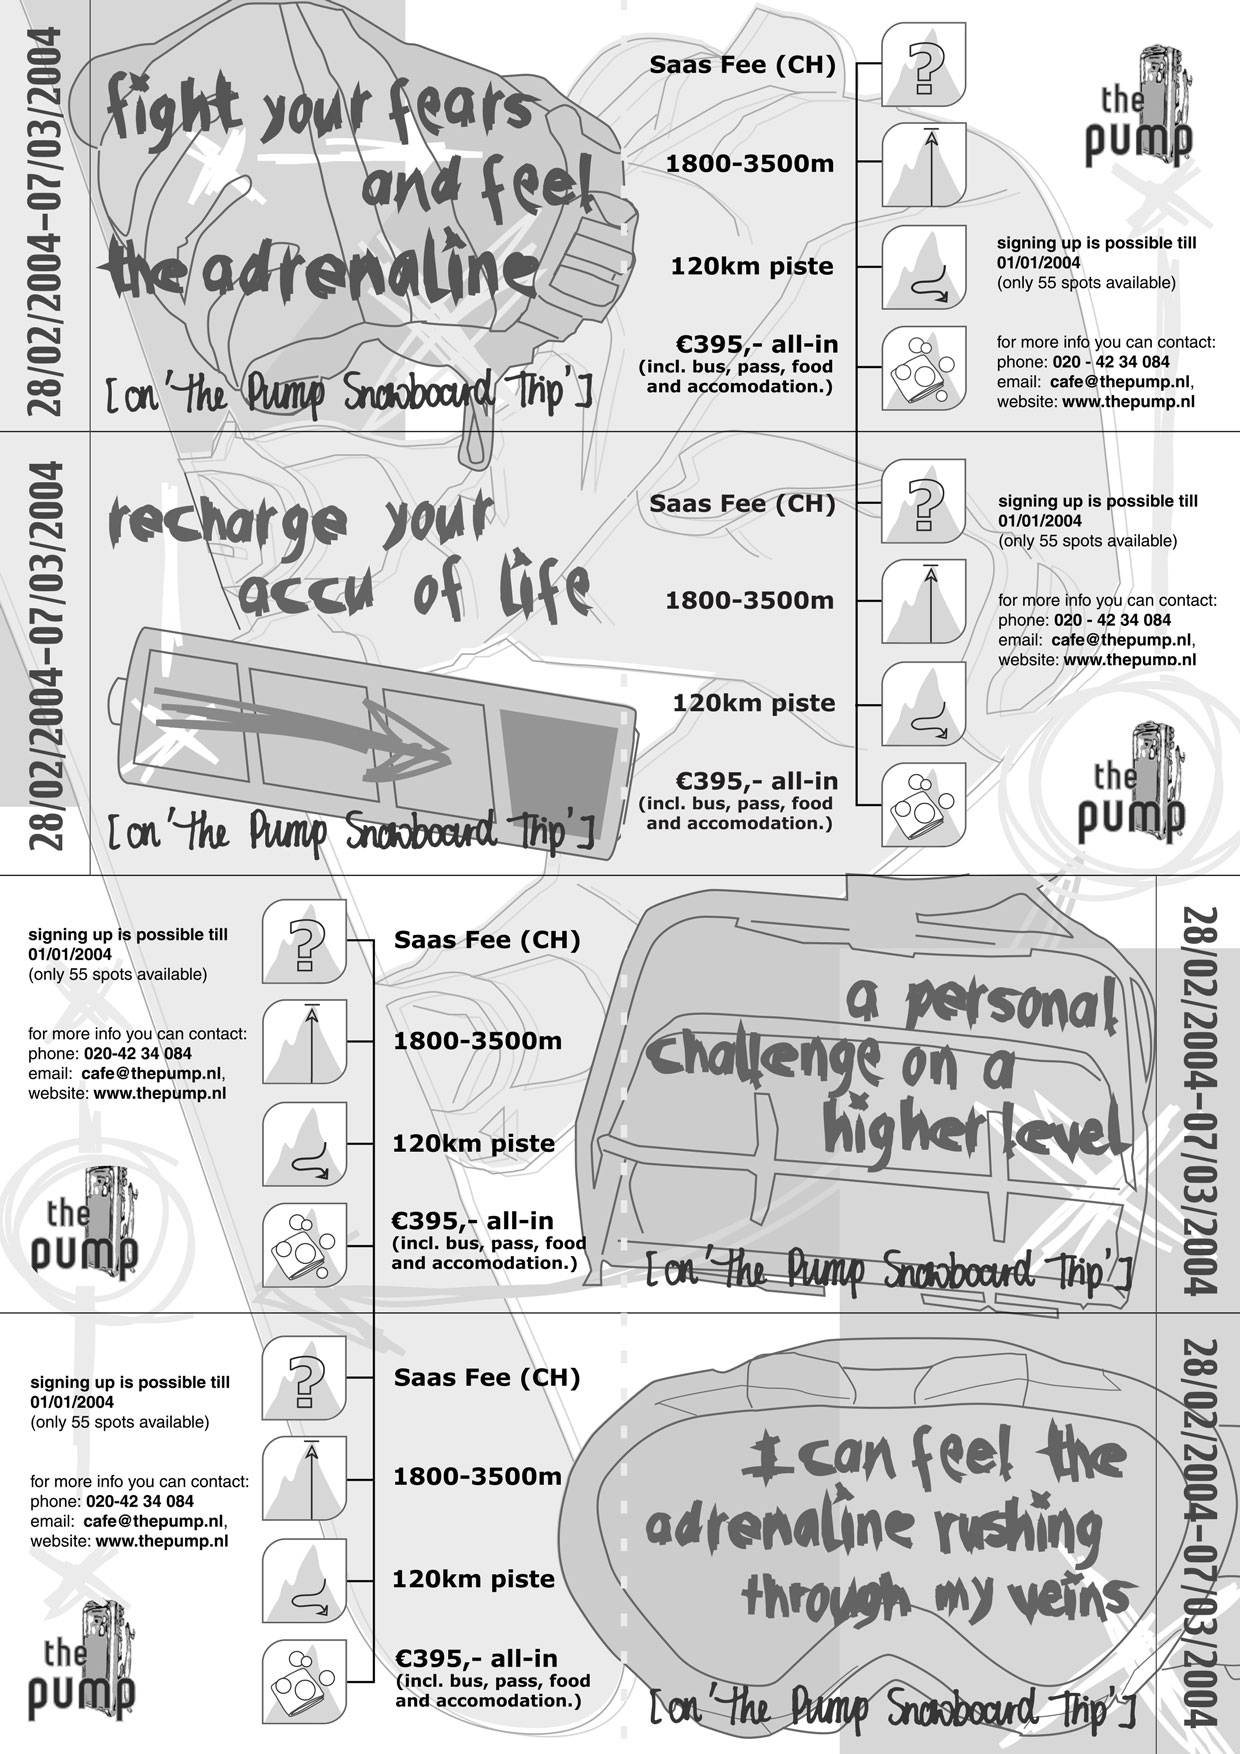 28/02/2004–07/03/2004
fight your fears
and feel
the adrenaline
[on 'the Pump Snowboard Trip']
Saas Fee (CH)
?
1800-3500m
120km piste
€395,- all-in
(incl. bus, pass, food
and accomodation.)
the
pump
signing up is possible till
01/01/2004
(only 55 spots available)
for more info you can contact:
phone: 020 - 42 34 084
email: cafe@thepump.nl,
website: www.thepump.nl
28/02/2004–07/03/2004
recharge your
accu of life
[on 'the Pump Snowboard Trip']
Saas Fee (CH)
?
1800-3500m
120km piste
€395,- all-in
(incl. bus, pass, food
and accomodation.)
signing up is possible till
01/01/2004
(only 55 spots available)
for more info you can contact:
phone: 020 - 42 34 084
email: cafe@thepump.nl,
website: www.thepump.nl
the
pump
signing up is possible till
01/01/2004
(only 55 spots available)
for more info you can contact:
phone: 020-42 34 084
email: cafe@thepump.nl,
website: www.thepump.nl
the
pump
?
Saas Fee (CH)
1800-3500m
120km piste
€395,- all-in
(incl. bus, pass, food
and accomodation.)
a personal
challenge on a
higher level
[on 'the Pump Snowboard Trip']
28/02/2004–07/03/2004
signing up is possible till
01/01/2004
(only 55 spots available)
for more info you can contact:
phone: 020-42 34 084
email: cafe@thepump.nl,
website: www.thepump.nl
the
pump
?
Saas Fee (CH)
1800-3500m
120km piste
€395,- all-in
(incl. bus, pass, food
and accomodation.)
I can feel the
adrenaline rushing
through my veins
[on 'the Pump Snowboard Trip']
28/02/2004–07/03/2004